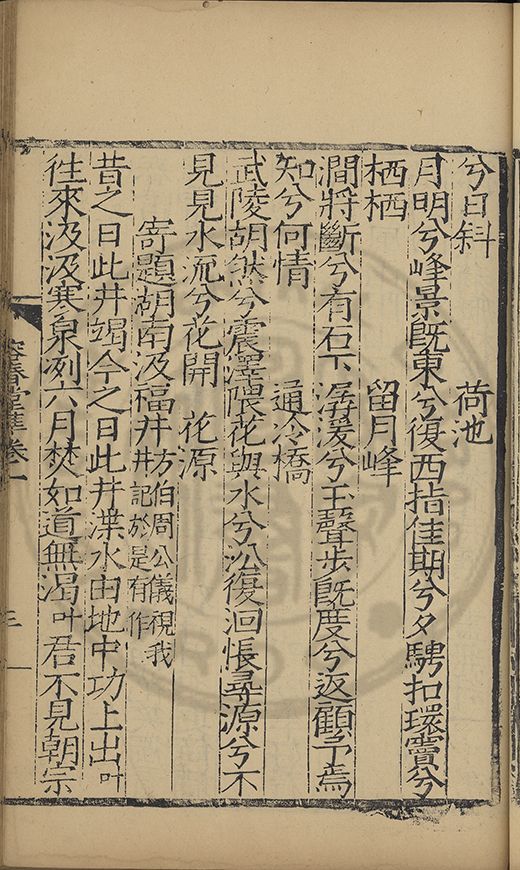 兮日斜　荷池
月明兮峰景既東兮復西指佳期兮夕騁扣環賣兮
栖栖　留月峰
澗將斷兮有石下潺湲兮玉聲步既度兮返顧予焉
知兮何情　通冷橋
武陵胡然兮震澤隈花與水兮沿復洄悵尋源兮不
見見水流兮花開　花源
寄題胡南汲福井方伯周公儀視我井記於是有作
昔之日此井竭今之日此井渫水由地中功上出叶
往來汲汲寒泉冽六月焚如道無渴叶君不見朝宗
容春堂集卷二
三